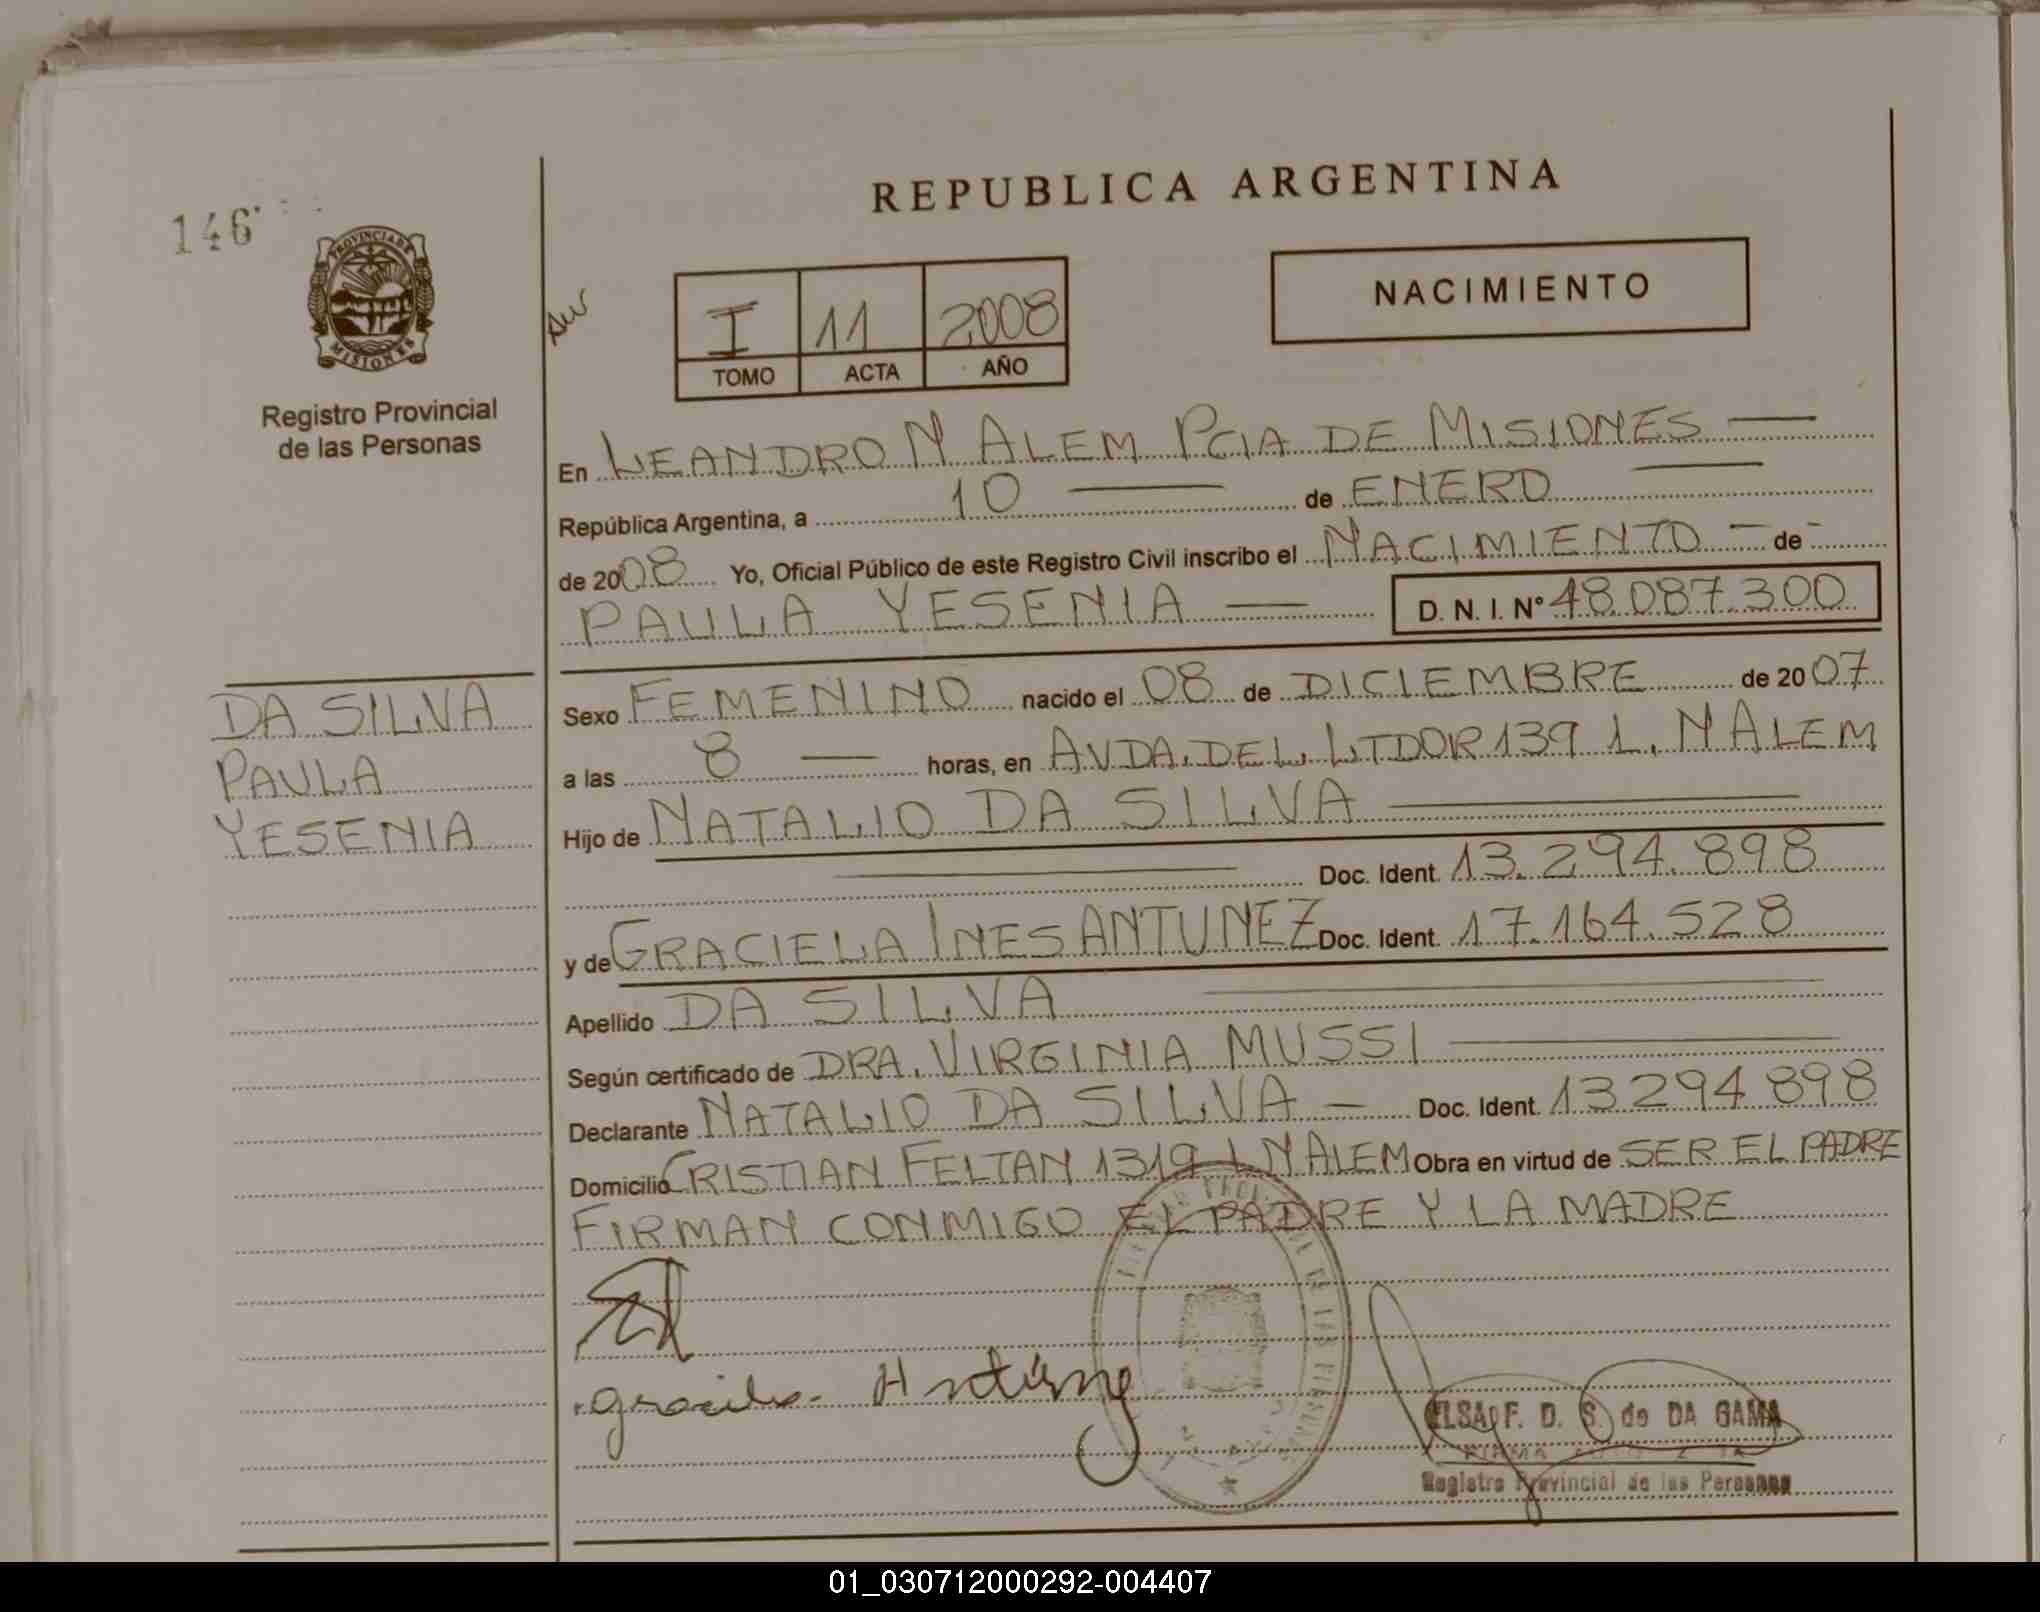 146
PROVINCIA DE
MISIONES
Registro Provincial
de las Personas
DA SILVA
PAULA
YESENIA
REPUBLICA ARGENTINA
I 11 2008
TOMO ACTA AÑO
NACIMIENTO
En LEANDRO N ALEM PCIA DE MISIONES
República Argentina, a 10 de ENERO
de 2008 Yo, Oficial Público de este Registro Civil inscribo el NACIMIENTO de
PAULA YESENIA D. N. I. Nº 48.087.300
Sexo FEMENINO nacido el 08 de DICIEMBRE de 2007
a las 8 horas, en AVDA. DEL LTDOR 139 L. N ALEM
Hijo de NATALIO DA SILVA
Doc. Ident. 13.294.898
y de GRACIELA INES ANTUNEZ Doc. Ident. 17.164.528
Apellido DA SILVA
Según certificado de DRA. VIRGINIA MUSSI
Declarante NATALIO DA SILVA Doc. Ident. 13294898
Domicilio CRISTIAN FELTAN 1319 L N ALEM Obra en virtud de SER EL PADRE
FIRMAN CONMIGO EL PADRE Y LA MADRE
ELSA F. D. S. de DA GAMA
Registro Provincial de las Personas
01_030712000292-004407